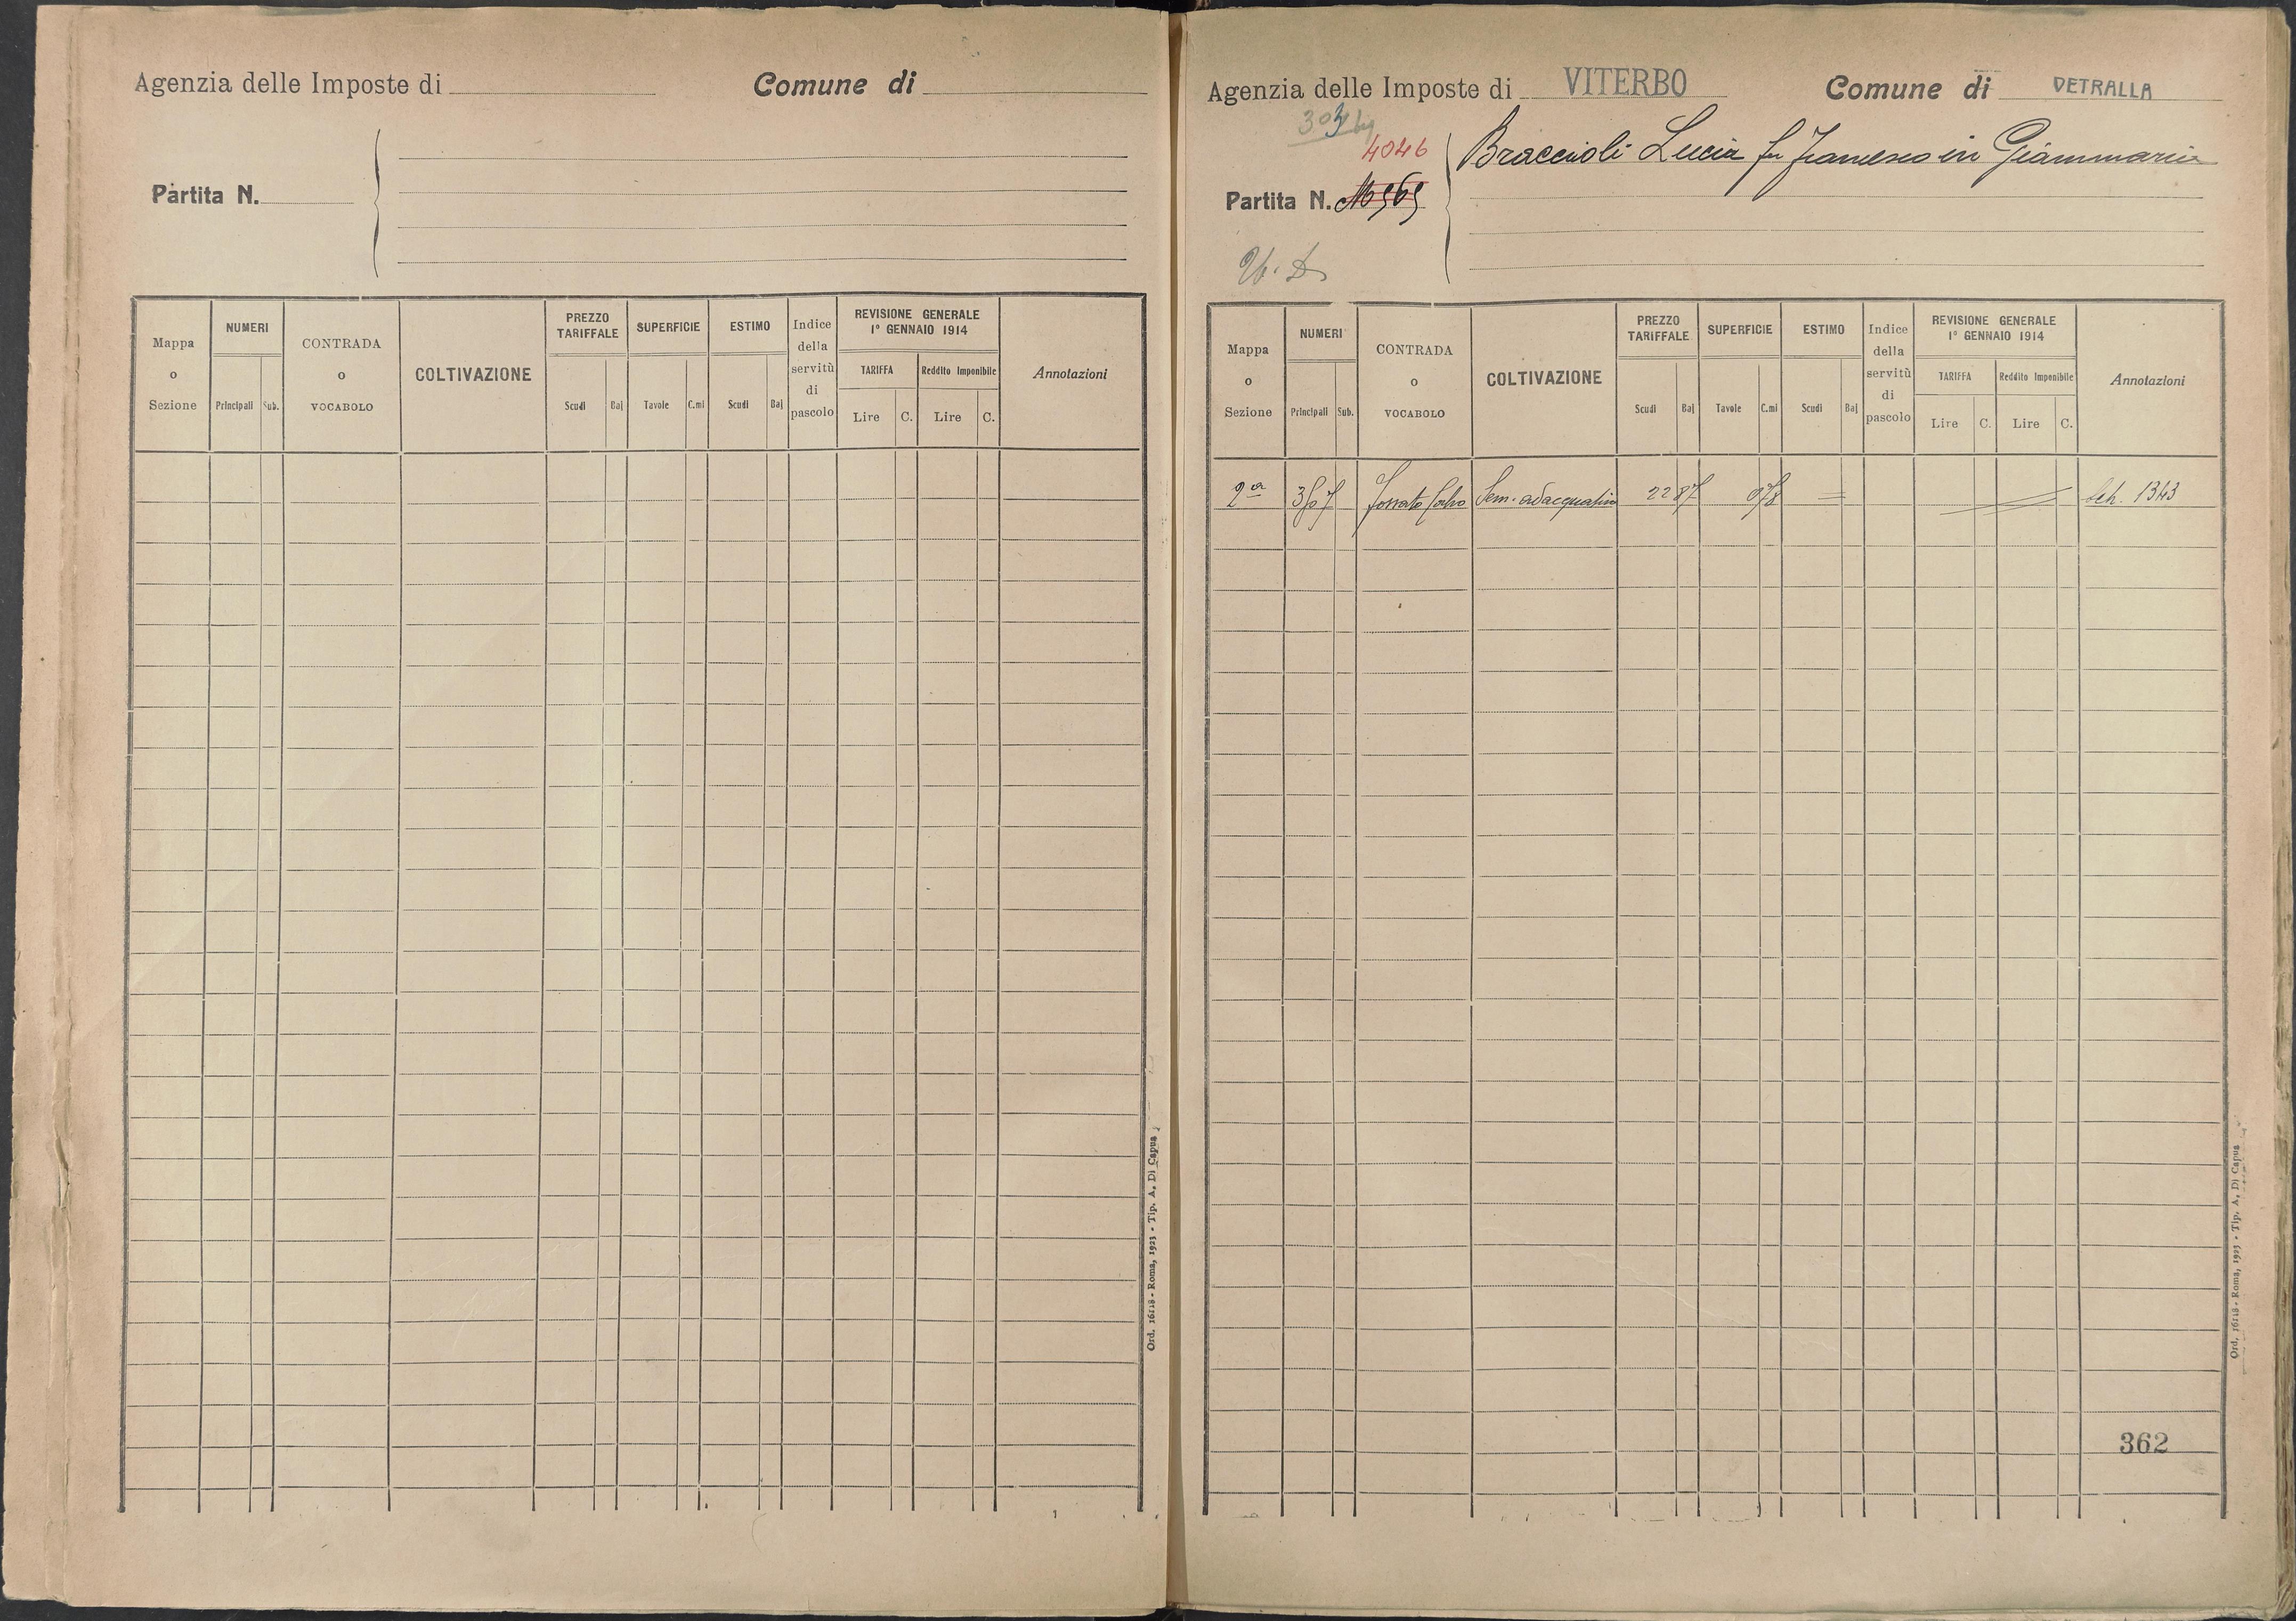 Agenzia delle Imposte di
Comune di
Partita N.
Mappa o Sezione
NUMERI
Principali
Sub.
CONTRADA o VOCABOLO
COLTIVAZIONE
PREZZO TARIFFALE
Scudi
Baj
SUPERFICIE
Tavole
C.mi
ESTIMO
Scudi
Baj
Indice della servitù di pascolo
REVISIONE GENERALE
1º GENNAIO 1914
TARIFFA
Reddito Imponibile
Lire
C.
Lire
C.
Annotazioni
Ord. 16118 - Roma, 1923 - Tip. A. Di Capua
Agenzia delle Imposte di VITERBO
Comune di VETRALLA
4046
Braccioli Lucia fu Francesco in Giammaria
Partita N.
Mappa o Sezione
NUMERI
Principali
Sub.
CONTRADA o VOCABOLO
COLTIVAZIONE
PREZZO TARIFFALE
Scudi
Baj
SUPERFICIE
Tavole
C.mi
ESTIMO
Scudi
Baj
Indice della servitù di pascolo
REVISIONE GENERALE
1º GENNAIO 1914
TARIFFA
Reddito Imponibile
Lire
C.
Lire
C.
Annotazioni
2ª Sem. adacquativo 22 87 1343
362
Ord. 16118 - Roma, 1923 - Tip. A. Di Capua